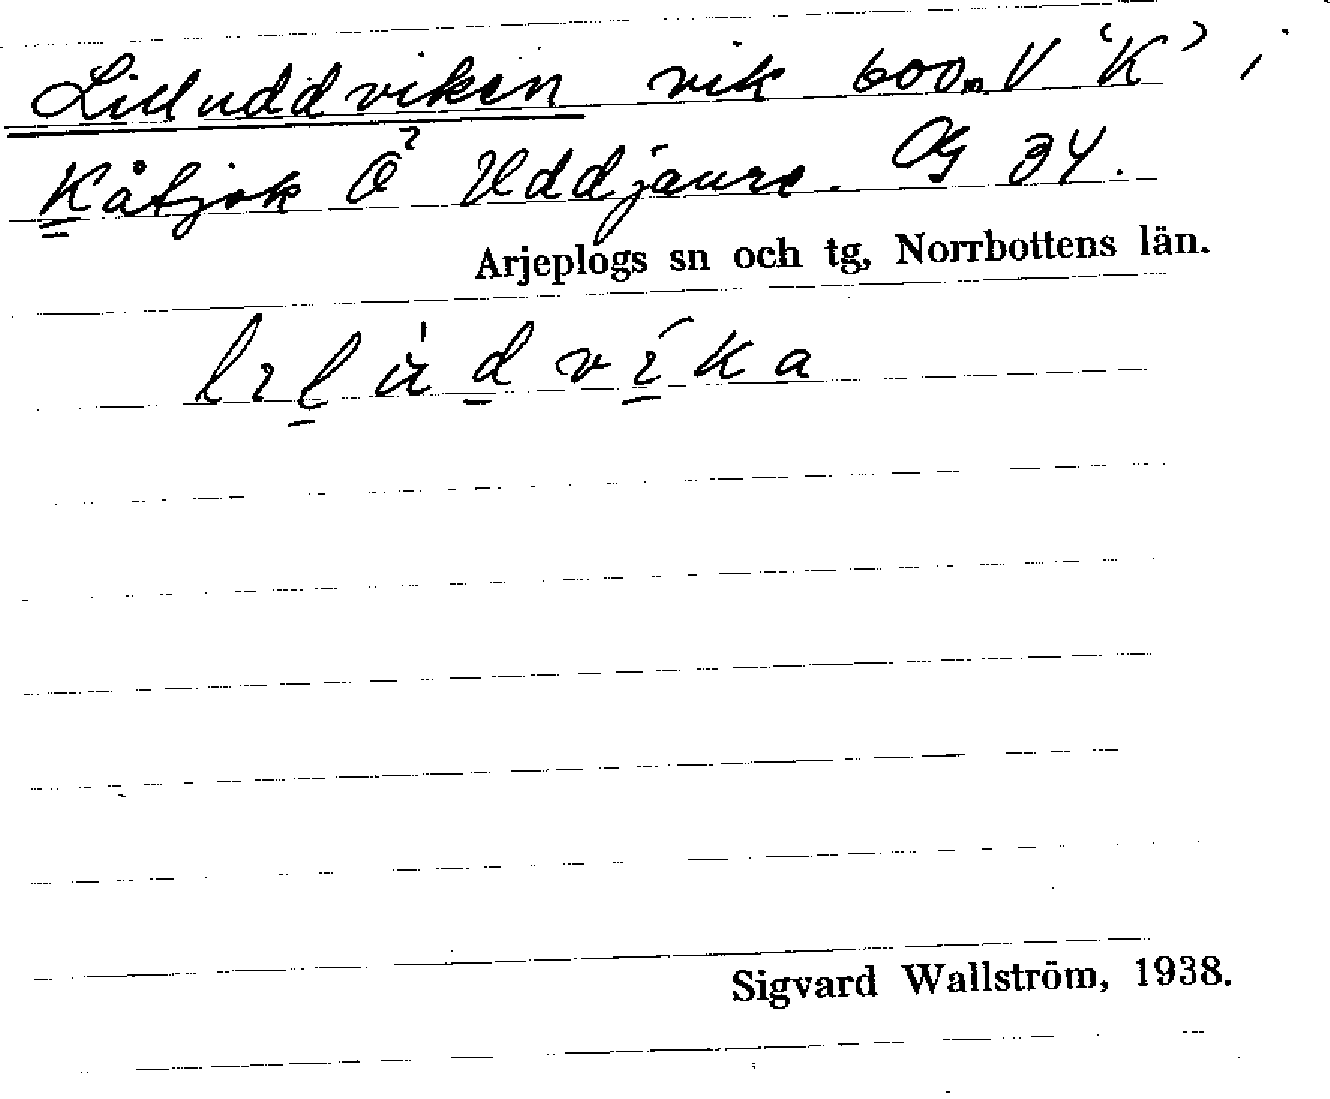 Lilluddviken vik 600m V 'K' i
Kåtjok Ö Uddjaure. Gg 34.
Arjeplogs sn och tg, Norrbottens län.
lılùdvíka
Sigvard Wallström, 1938.